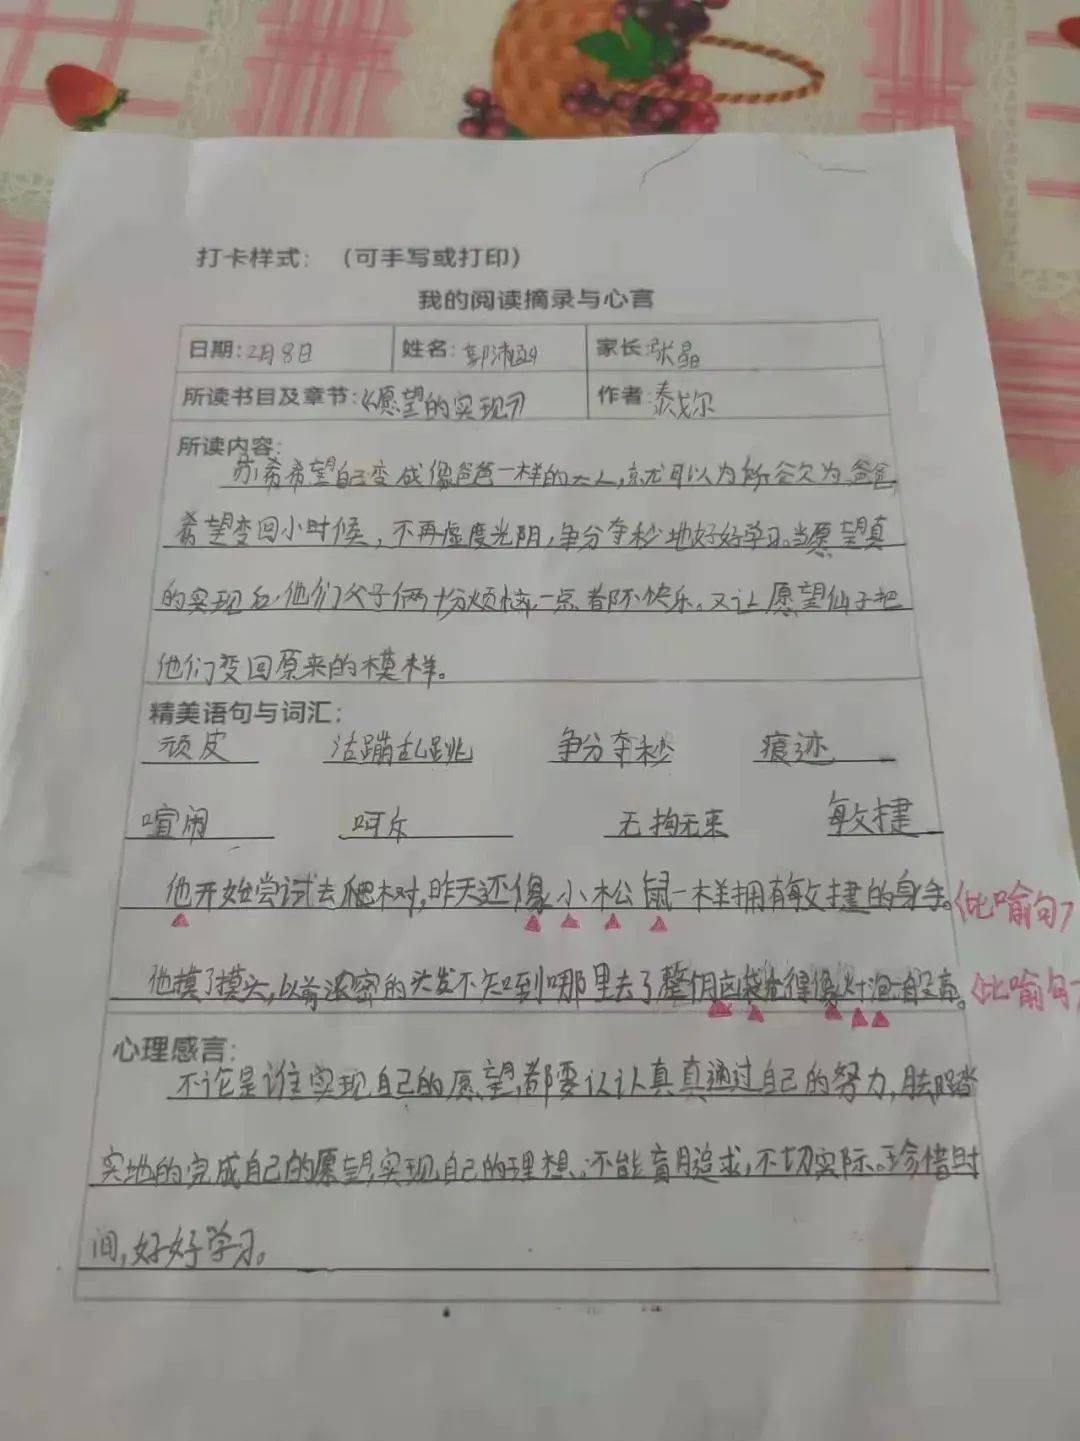 打卡样式：（可手写或打印）
我的阅读摘录与心言
日期：2月8日 姓名：郭沛 家长：张晶
所读书目及章节：《愿望的实现》 作者：泰戈尔
所读内容：
苏希希望自己变成像爸爸一样的大人，就可以为所谷欠为，爸爸
希望变回小时候，不再虚度光阴，争分夺秒地好好学习。当愿望真
的实现后，他们父子俩十分烦恼，一点都不快乐。又让愿望仙子把
他们变回原来的模样。
精美语句与词汇：
顽皮 活蹦乱跳 争分夺秒 痕迹
喧闹 呵斥 无拘无束 敏捷
他开始尝试去爬树，昨天还像小松鼠一样拥有敏捷的身手。《比喻句》
他摸了摸头，以前浓密的头发不知到哪里去了，整个脑袋光得像灯泡一般亮。《比喻句》
心理感言：
不论是谁实现自己的愿望，都要认认真真通过自己的努力，脚踏
实地的完成自己的愿望，实现自己的理想。不能盲目追求，不切实际。珍惜时
间，好好学习。